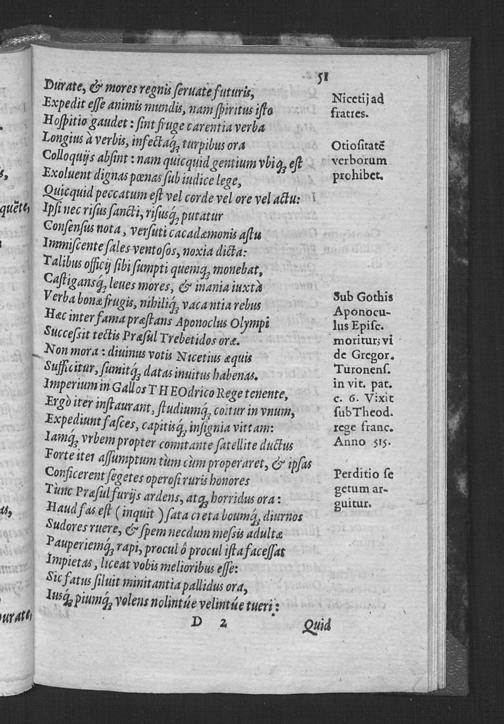 51
Durate, & mores regnis seruate futuris,
Expedit esse animis mundis, nam spiritus isto
Hospitio gaudet: sint fruge carentia verba
Longius à verbis, infectaq́; turpibus ora
Colloquijs absint: nam quicquid gentium vbiq́; est
Exoluent dignas pœnas sub iudice lege,
Quicquid peccatum est vel corde vel ore vel actu:
Ipsi nec risus sancti, risusq́; putatur
Consensus nota, versuti cacadæmonis astu
Immiscente sales ventosos, noxia dicta:
Talibus officij sibi sumpti quemq́; monebat,
Castigansq́; leues mores, & inania iuxtà
Verba bonæ frugis, nihiliq́; vacantia rebus
Hæc inter fama præstans Aponoclus Olympi
Successit tectis Præsul Trebetidos oræ.
Non mora: diuinus votis Nicetius æquis
Sufficitur, sumitq́; datas inuitus habenas.
Imperium in Gallos THEOdrico Rege tenente,
Ergò iter instaurant, studiumq́; coitur in vnum,
Expediunt fasces, capitisq́; insignia vittam:
Iamq́; vrbem propter comitante satellite ductus
Forte iter assumptum tùm cùm properaret, & ipsas
Conficerent segetes operosi ruris honores
Tunc Præsul furijs ardens, atq́; horridus ora:
Haud fas est (inquit) sata creta boumq́; diurnos
Sudores ruere, & spem necdum messis adultæ
Pauperiemq́; rapi, procul ô procul ista facessat
Impietas, liceat vobis melioribus esse:
Sic fatus siluit minitantia pallidus ora,
Iusq́; piumq́; volens nolintúe velintúe tueri:
D 2
Quid
Nicetij ad
fratres.
Otiositatē
verborum
prohibet.
Sub Gothis
Aponocu-
lus Episc.
moritur; vi
de Gregor.
Turonens.
in vit. pat.
c. 6. Vixit
sub Theod.
rege franc.
Anno 515.
Perditio se
getum ar-
guitur.